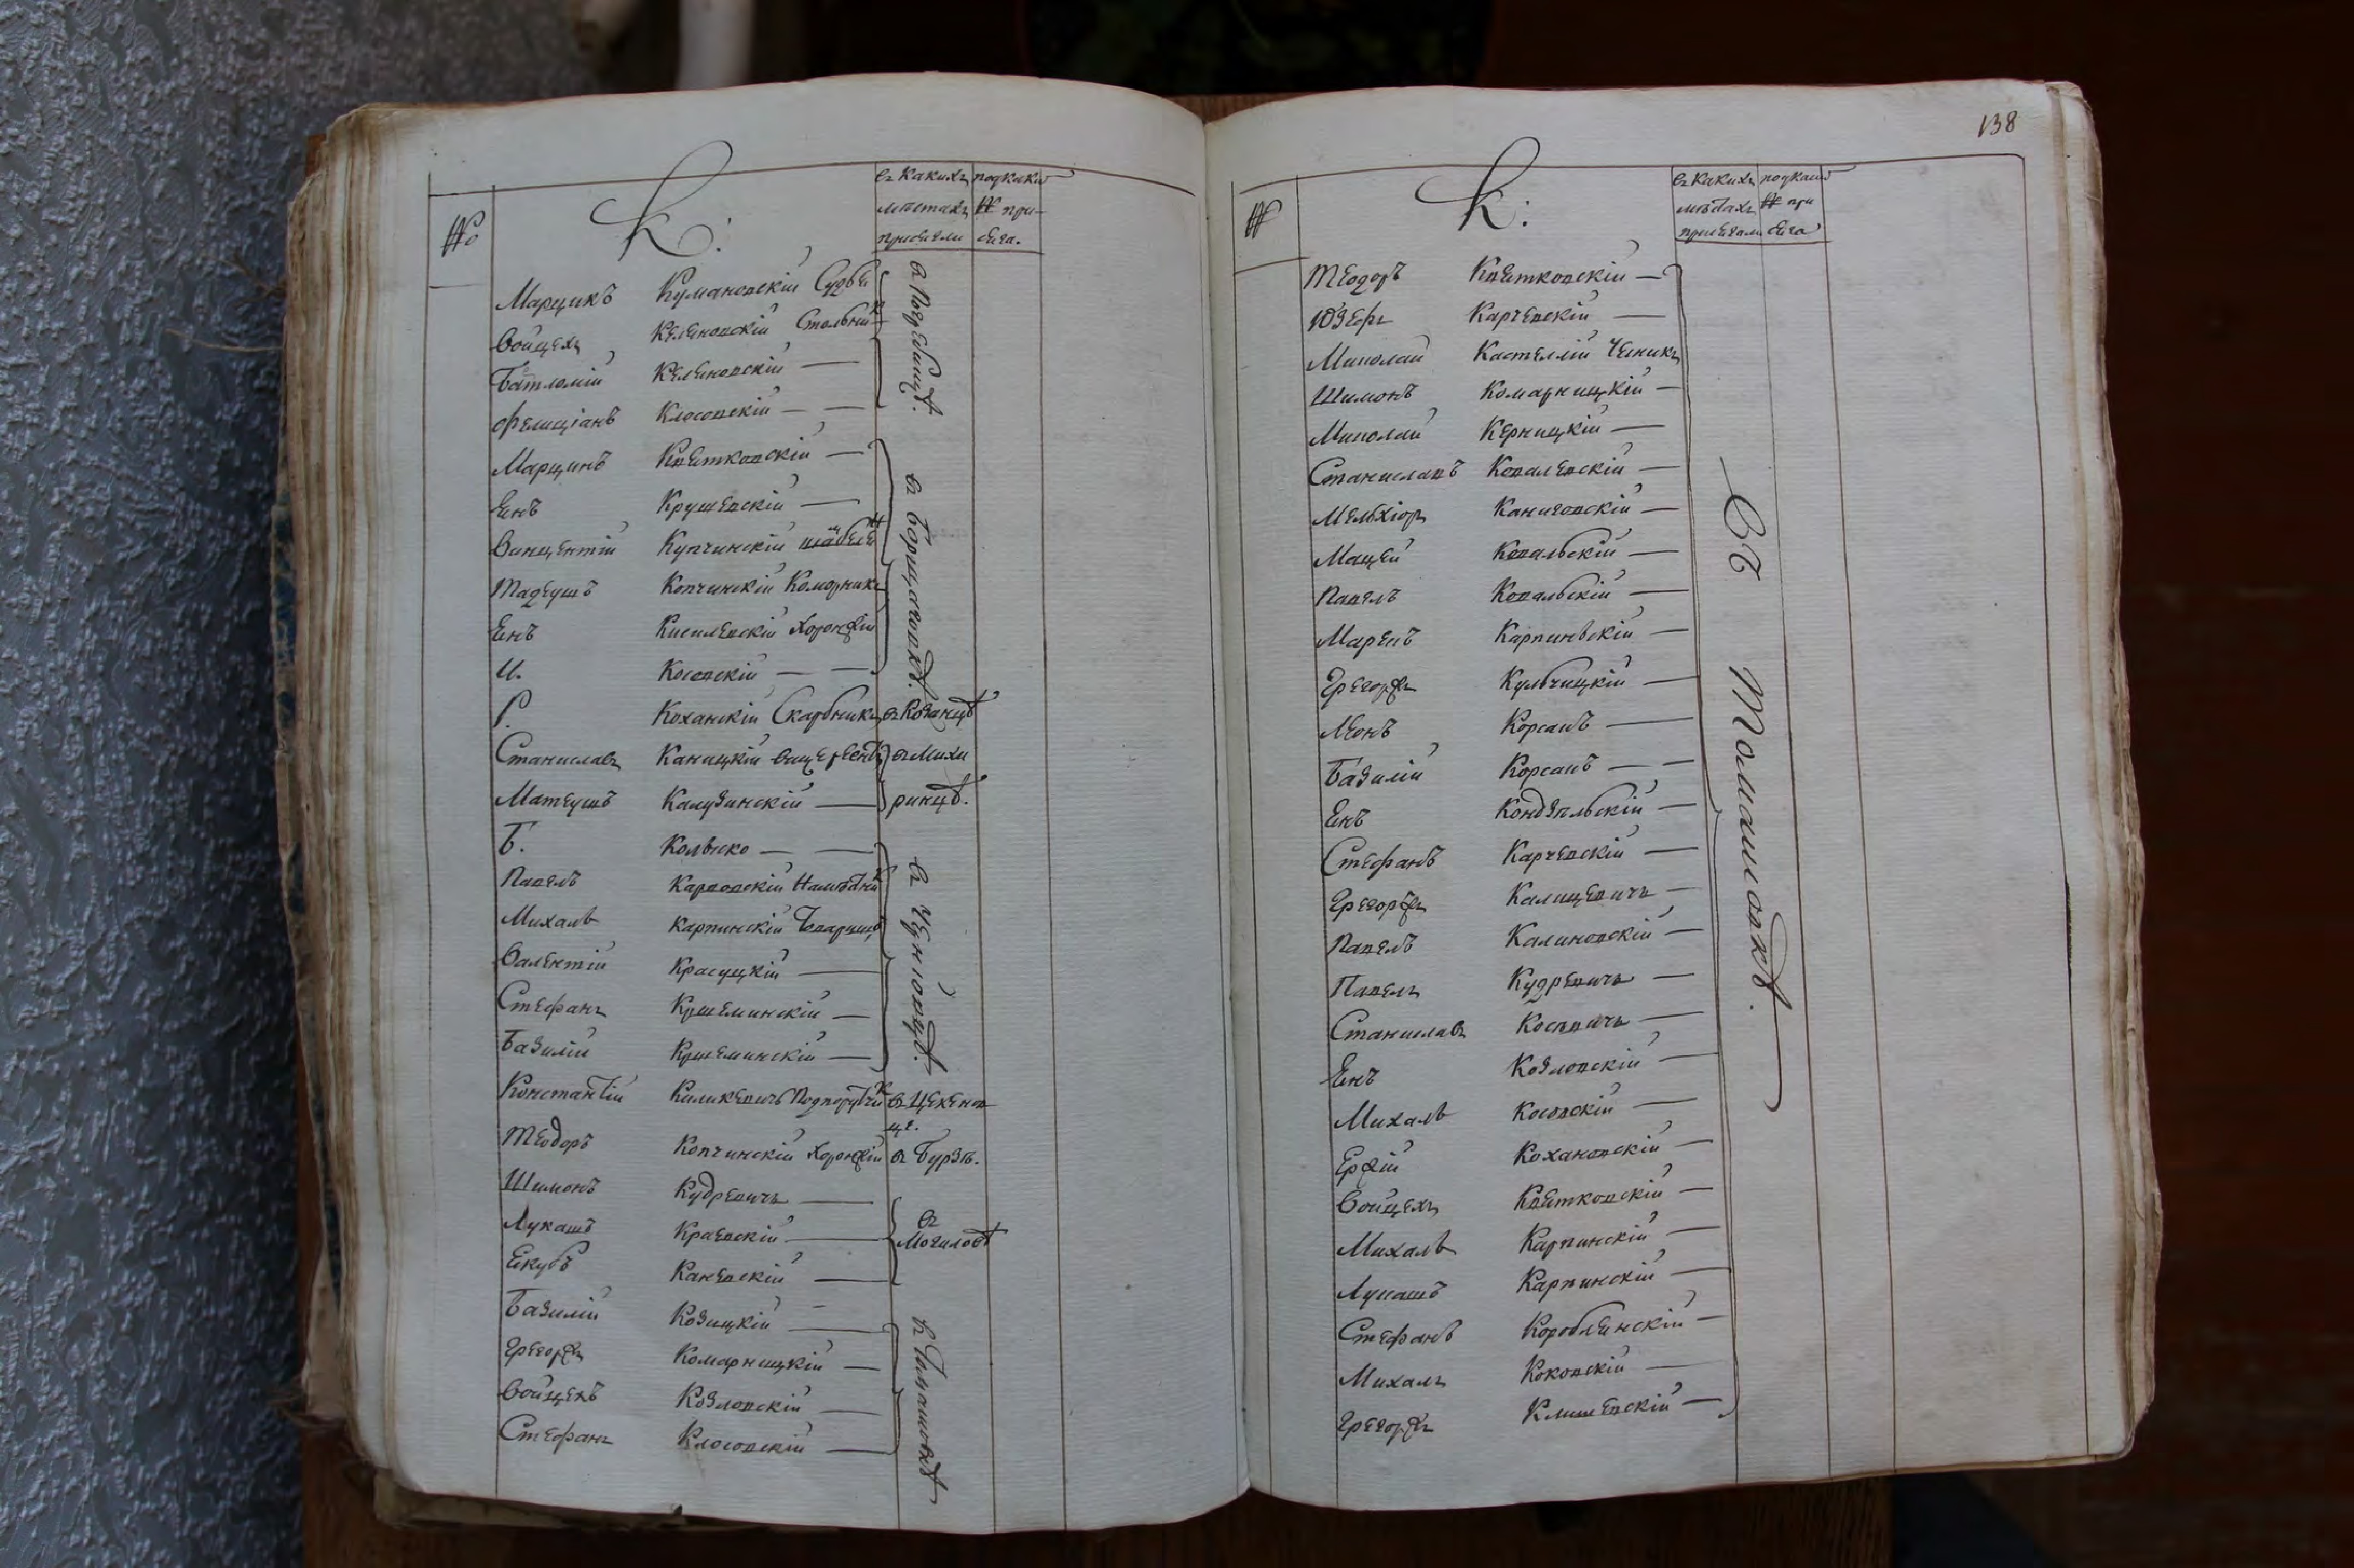 №
К:
въ какихъ местахъ присягали
подкаки № присяга.
Марцикъ Кумановскій Судья
Войцехъ Келеновскій Стольник
Батломій Келеновскій —
Фелиціанъ Клосовскій — —
Марцинъ Квятковскій —
Янъ Крушевскій —
Винцентій Купчинскій
Тадеушъ Копчинскій Коморникъ
Янъ Кисилевскій Хоронжій
И. Косовскій — —
Р. Коханскій Скарбникъ въ Козанцѣ
Станиславъ Каницкій вицерегентъ въ Михи
Матеушъ Калузинскій — ринцѣ.
Б. Колыско — —
Павелъ Карповскій Намѣстник
Михалъ Карпинскій Товарищъ
Валентій Красуцкій —
Стефанъ Кршеминскій —
Базилій Кршеминскій —
Константій Киликевичъ Подпоручик въ Цекенов
цѣ.
Теодоръ Копчинскій Хоронжій въ Бурзѣ.
Шимонъ Кудревичъ —
Лукашъ Краевскій —
въ Могиловѣ
Якубъ Каневскій —
Базилій Козицкій —
Грегоржъ Комарницкій —
Войцехъ Козловскій —
Стефанъ Клосовскій —
въ Борщаговкѣ.
въ Томашовкѣ
138
№
К:
въ какихъ местахъ присягали
подкаки № присяга
Теодоръ Квятковскій —
Юзефъ Карчевскій —
Миколай Кастеллій Чесникъ
Шимонъ Комарницкій —
Миколай Керницкій —
Станиславъ Ковалевскій —
Мельхіоръ Каниговскій —
Мацей Ковальскій —
Павелъ Ковальскій —
Марекъ Карпинскій —
Грегоржъ Кульчицкій —
Леонъ Корсакъ —
Базилій Корсакъ — —
Янъ Кондзѣльскій —
Стефанъ Карчевскій —
Грегоржъ Калицевичъ —
Павелъ Калиновскій —
Павелъ Кудревичъ —
Станиславъ Косѣвичъ —
Янъ Козловскій —
Михалъ Косовскій —
Ержій Кохановскій —
Войцехъ Квятковскій —
Михалъ Карпинскій —
Лукашъ Карпинскій —
Стефанъ Короблянскій —
Михалъ Коковскій —
Грегоржъ Климевскій —
Въ Томашовкѣ.